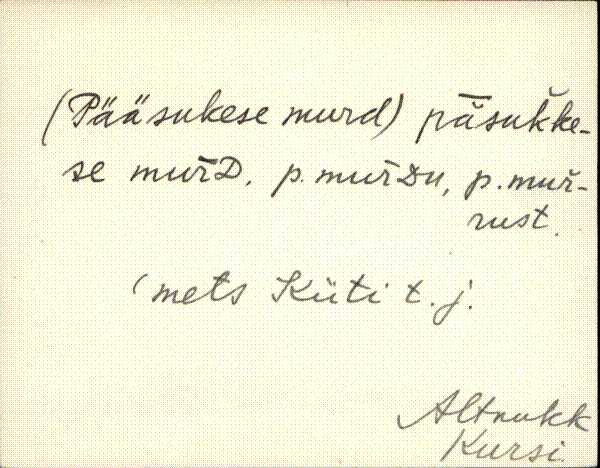 (Pääsukese murd) pǟsuk̆ke-
se mur̄D, p. mur̄Du, p. mur̆-
rust.
(mets Küti t. j.
Altnukk
Kursi